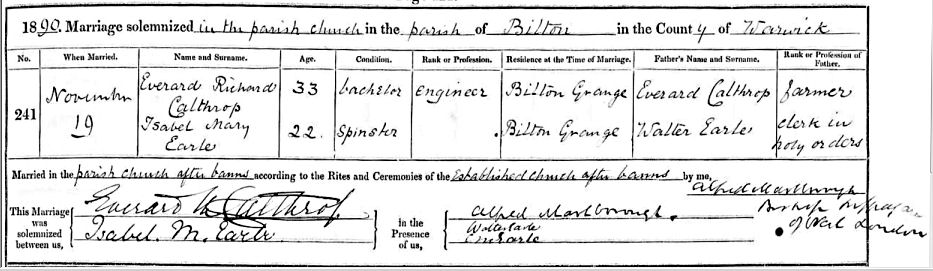 1890. Marriage solemnized in the parish church in the parish of Bilton in the County of Warwick
No. When Married. Name and Surname. Age. Condition. Rank or Profession. Residence at the Time of Marriage. Father's Name and Surname. Rank or Profession of Father.
241 November 19 Everard Richard Calthrop 33 bachelor engineer Bilton Grange Everard Calthrop farmer
Isabel Mary Earle 22. Spinster Bilton Grange Walter Earle clerk in holy orders
Married in the parish church after banns according to the Rites and Ceremonies of the Established church after banns by me, Alfred Marlborough
Bishop Suffragan
of West London
This Marriage was solemnized between us, Everard R Calthrop
Isabel. M. Earle
in the Presence of us, Alfred Marlborough.
Walter Earle
Earle